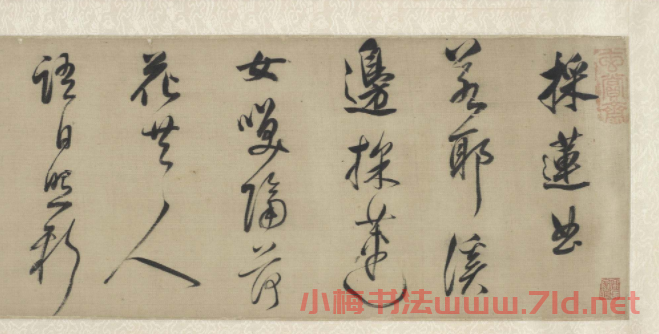 採蓮曲
若耶溪
邊採蓮
女嘆隔荷
花共人
語日照新
小梅书法www.7ld.net